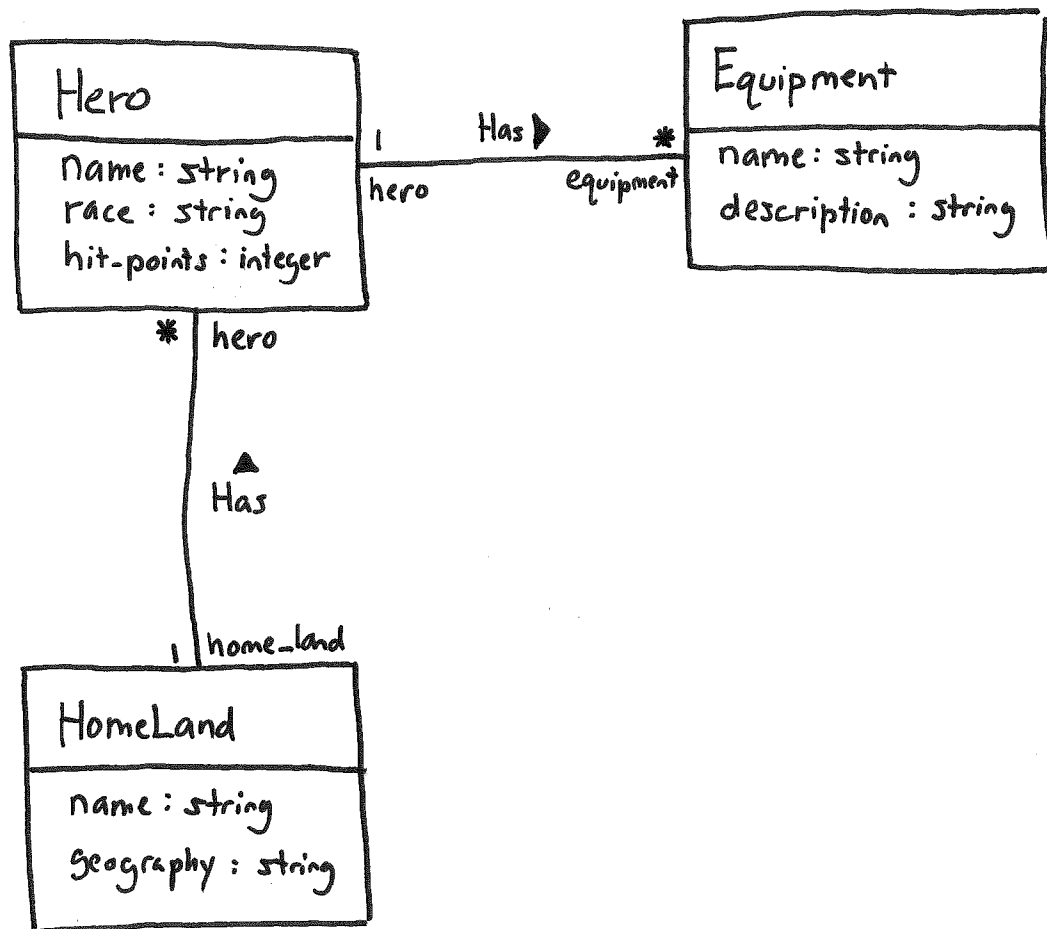 Hero
name : string
race : string
hit_points : integer
1
hero
Has
*
equipment
Equipment
name : string
description : string
*
hero
Has
1
home_land
HomeLand
name : string
geography : string